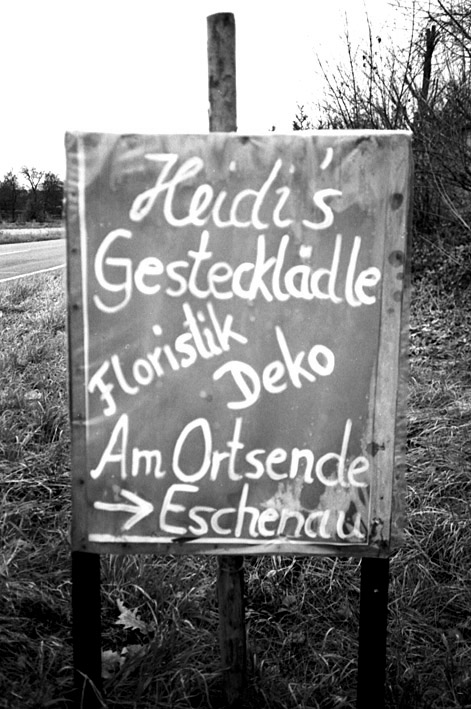 Heidi's
Gestecklädle
Floristik
Deko
Am Ortsende
→ Eschenau